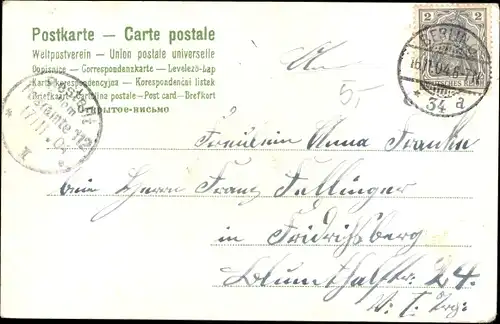 Postkarte — Carte postale
Weltpostverein – Union postale universelle
Dopisnice – Correspondenzkarte – Levelező-Lap
Karta korespondencyjna – Korespondenční lístek
Brevkort – Cartolina postale – Post card – Brefkort
Открытое-письмо
2
BERLIN
16.11.04.
* 34 a
DEUTSCHES REICH
17/11.04
II
An
5,-
Fräulein Anna Franke
beim Herrn Franz Fallinger
in Fridrichsberg
Blumthalstr. 24.